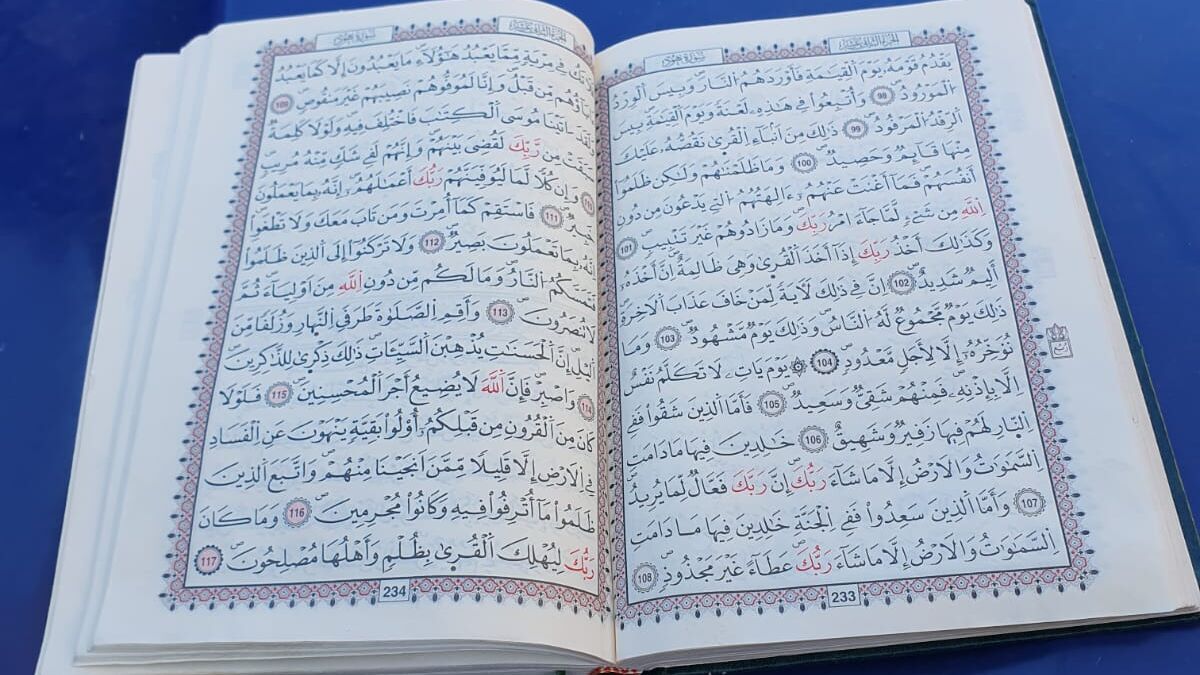 سُورَةُ هُودٍ
الجزء الثاني عشر
يَقْدُمُ قَوْمَهُۥ يَوْمَ اَلْقِيَٰمَةِ فَأَوْرَدَهُمُ اُلنَّارَ وَبِيسَ اَلْوِرْدُ
اُلْمَوْرُودُ 98 وَأُتْبِعُواْ فِي هَٰذِهِۦ لَعْنَةً وَيَوْمَ اَلْقِيَٰمَةِ بِيسَ
اَلرِّفْدُ اُلْمَرْفُودُ 99 ذَٰلِكَ مِنَ اَنۢبَآءِ اِلْقُرَىٰ نَقُصُّهُۥ عَلَيْكَ
مِنْهَا قَآئِمٌ وَحَصِيدٌ 100 وَمَا ظَلَمْنَٰهُمْ وَلَٰكِن ظَلَمُواْ
أَنفُسَهُمْ فَمَآ أَغْنَتْ عَنْهُمُۥٓ ءَالِهَتُهُمُ اُلَّتِي يَدْعُونَ مِن دُونِ
اِللَّهِ مِن شَےْءٍ لَّمَّا جَآءَ امْرُ رَبِّكَ وَمَا زَادُوهُمْ غَيْرَ تَتْبِيبٍ 101
وَكَذَٰلِكَ أَخْذُ رَبِّكَ إِذَآ أَخَذَ اَلْقُرَىٰ وَهِيَ ظَٰلِمَةٌ اِنَّ أَخْذَهُۥٓ
أَلِيمٌ شَدِيدٌ 102 اِنَّ فِي ذَٰلِكَ لَأٓيَةً لِّمَنْ خَافَ عَذَابَ اَلَاخِرَةِ
ذَٰلِكَ يَوْمٌ مَّجْمُوعٌ لَّهُ اُلنَّاسُ وَذَٰلِكَ يَوْمٌ مَّشْهُودٌ 103 وَمَا
نُؤَخِّرُهُۥٓ إِلَّا لِأَجَلٍ مَّعْدُودٍ 104 يَوْمَ يَاتِ لَا تَكَلَّمُ نَفْسٌ
اِلَّا بِإِذْنِهِۦ فَمِنْهُمْ شَقِيٌّ وَسَعِيدٌ 105 فَأَمَّا اَلذِينَ شَقُواْ فَفِي
اِلنَّارِ لَهُمْ فِيهَا زَفِيرٌ وَشَهِيقٌ 106 خَٰلِدِينَ فِيهَا مَا دَامَتِ
اِلسَّمَٰوَٰتُ وَالَارْضُ إِلَّا مَا شَآءَ رَبُّكَ إِنَّ رَبَّكَ فَعَّالٌ لِّمَا يُرِيدُ
107 وَأَمَّا اَلذِينَ سَعِدُواْ فَفِي اِلْجَنَّةِ خَٰلِدِينَ فِيهَا مَا دَامَتِ
اِلسَّمَٰوَٰتُ وَالَارْضُ إِلَّا مَا شَآءَ رَبُّكَ عَطَآءً غَيْرَ مَجْذُوذٍ 108
233
ربع
سُورَةُ هُودٍ
الجزء الثاني عشر
تَكُ فِي مِرْيَةٍ مِّمَّا يَعْبُدُ هَٰٓؤُلَآءِ مَا يَعْبُدُونَ إِلَّا كَمَا يَعْبُدُ
ءَابَآؤُهُم مِّن قَبْلُ وَإِنَّا لَمُوَفُّوهُمْ نَصِيبَهُمْ غَيْرَ مَنقُوصٍ 109
وَلَقَدَ اٰتَيْنَا مُوسَى اَلْكِتَٰبَ فَاخْتُلِفَ فِيهِ وَلَوْلَا كَلِمَةٌ
سَبَقَتْ مِن رَّبِّكَ لَقُضِيَ بَيْنَهُمْ وَإِنَّهُمْ لَفِي شَكٍّ مِّنْهُ مُرِيبٍ
110 وَإِن كُلًّا لَّمَا لَيُوَفِّيَنَّهُمْ رَبُّكَ أَعْمَٰلَهُمُۥٓ إِنَّهُۥ بِمَا يَعْمَلُونَ
خَبِيرٌ 111 فَاسْتَقِمْ كَمَآ أُمِرْتَ وَمَن تَابَ مَعَكَ وَلَا تَطْغَوِاْ
اِنَّهُۥ بِمَا تَعْمَلُونَ بَصِيرٌ 112 وَلَا تَرْكَنُوٓاْ إِلَى اَلذِينَ ظَلَمُواْ
فَتَمَسَّكُمُ اُلنَّارُ وَمَا لَكُم مِّن دُونِ اِللَّهِ مِنَ اَوْلِيَآءَ ثُمَّ
لَا تُنصَرُونَ 113 وَأَقِمِ اِلصَّلَوٰةَ طَرَفَيِ اِلنَّهَارِ وَزُلَفًا مِّنَ
اَليْلِ إِنَّ اَلْحَسَنَٰتِ يُذْهِبْنَ اَلسَّيِّـَٔاتِ ذَٰلِكَ ذِكْرَىٰ لِلذَّٰكِرِينَ
114 وَاصْبِرْ فَإِنَّ اَللَّهَ لَا يُضِيعُ أَجْرَ اَلْمُحْسِنِينَ 115 فَلَوْلَا
كَانَ مِنَ اَلْقُرُونِ مِن قَبْلِكُمُۥٓ أُوْلُواْ بَقِيَّةٍ يَنْهَوْنَ عَنِ اِلْفَسَادِ
فِي اِلَارْضِ إِلَّا قَلِيلًا مِّمَّنَ اَنجَيْنَا مِنْهُمْ وَاتَّبَعَ اَلذِينَ
ظَلَمُواْ مَآ أُتْرِفُواْ فِيهِ وَكَانُواْ مُجْرِمِينَ 116 وَمَا كَانَ
رَبُّكَ لِيُهْلِكَ اَلْقُرَىٰ بِظُلْمٍ وَأَهْلُهَا مُصْلِحُونَ 117
234